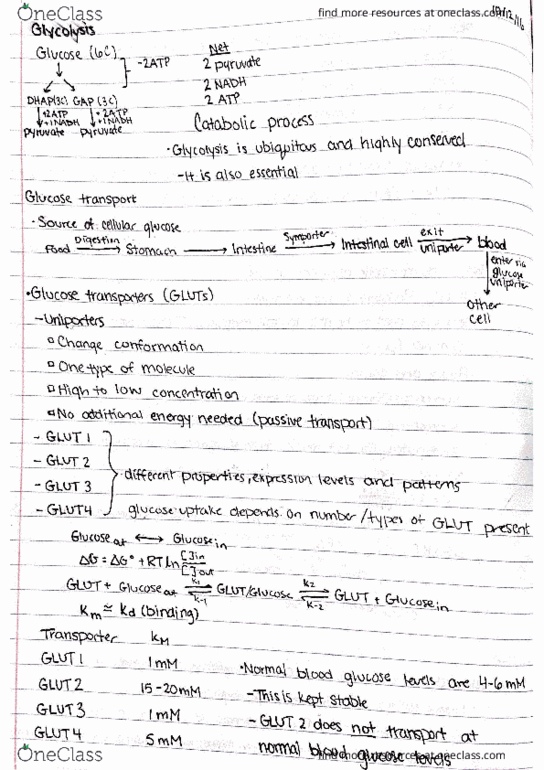 OneClass
find more resources at oneclass.com
Glycolysis
Glucose (6C)
-2ATP
Net
2 pyruvate
2 NADH
2 ATP
DHAP(3C) GAP (3C)
+2ATP +2ATP
+1NADH +1NADH
pyruvate pyruvate
Catabolic process
·Glycolysis is ubiquitous and highly conserved
-It is also essential
Glucose transport
·Source of cellular glucose
Food Digestion → Stomach → Intestine Symporter → Intestinal cell exit uniporter → blood
enter via
glucose
uniporter
other
cell
•Glucose transporters (GLUTs)
-Uniporters
▫Change conformation
▫One type of molecule
▫High to low concentration
▫No additional energy needed (passive transport)
- GLUT 1
- GLUT 2
- GLUT 3
- GLUT4
different properties, expression levels and patterns
glucose uptake depends on number/types of GLUT present
Glucose out ↔ Glucose in
ΔG = ΔG° + RT ln [ ]in / [ ]out
GLUT + Glucose out ⇌ k-1 GLUT/Glucose k2 ⇌ k-2 GLUT + Glucose in
Km ≅ Kd (binding)
Transporter KM
GLUT 1 1mM
GLUT 2 15-20mM
GLUT 3 1mM
GLUT 4 5mM
•Normal blood glucose levels are 4-6mM
-This is kept stable
-GLUT 2 does not transport at
normal blood glucose levels
OneClass
find more resources at oneclass.com